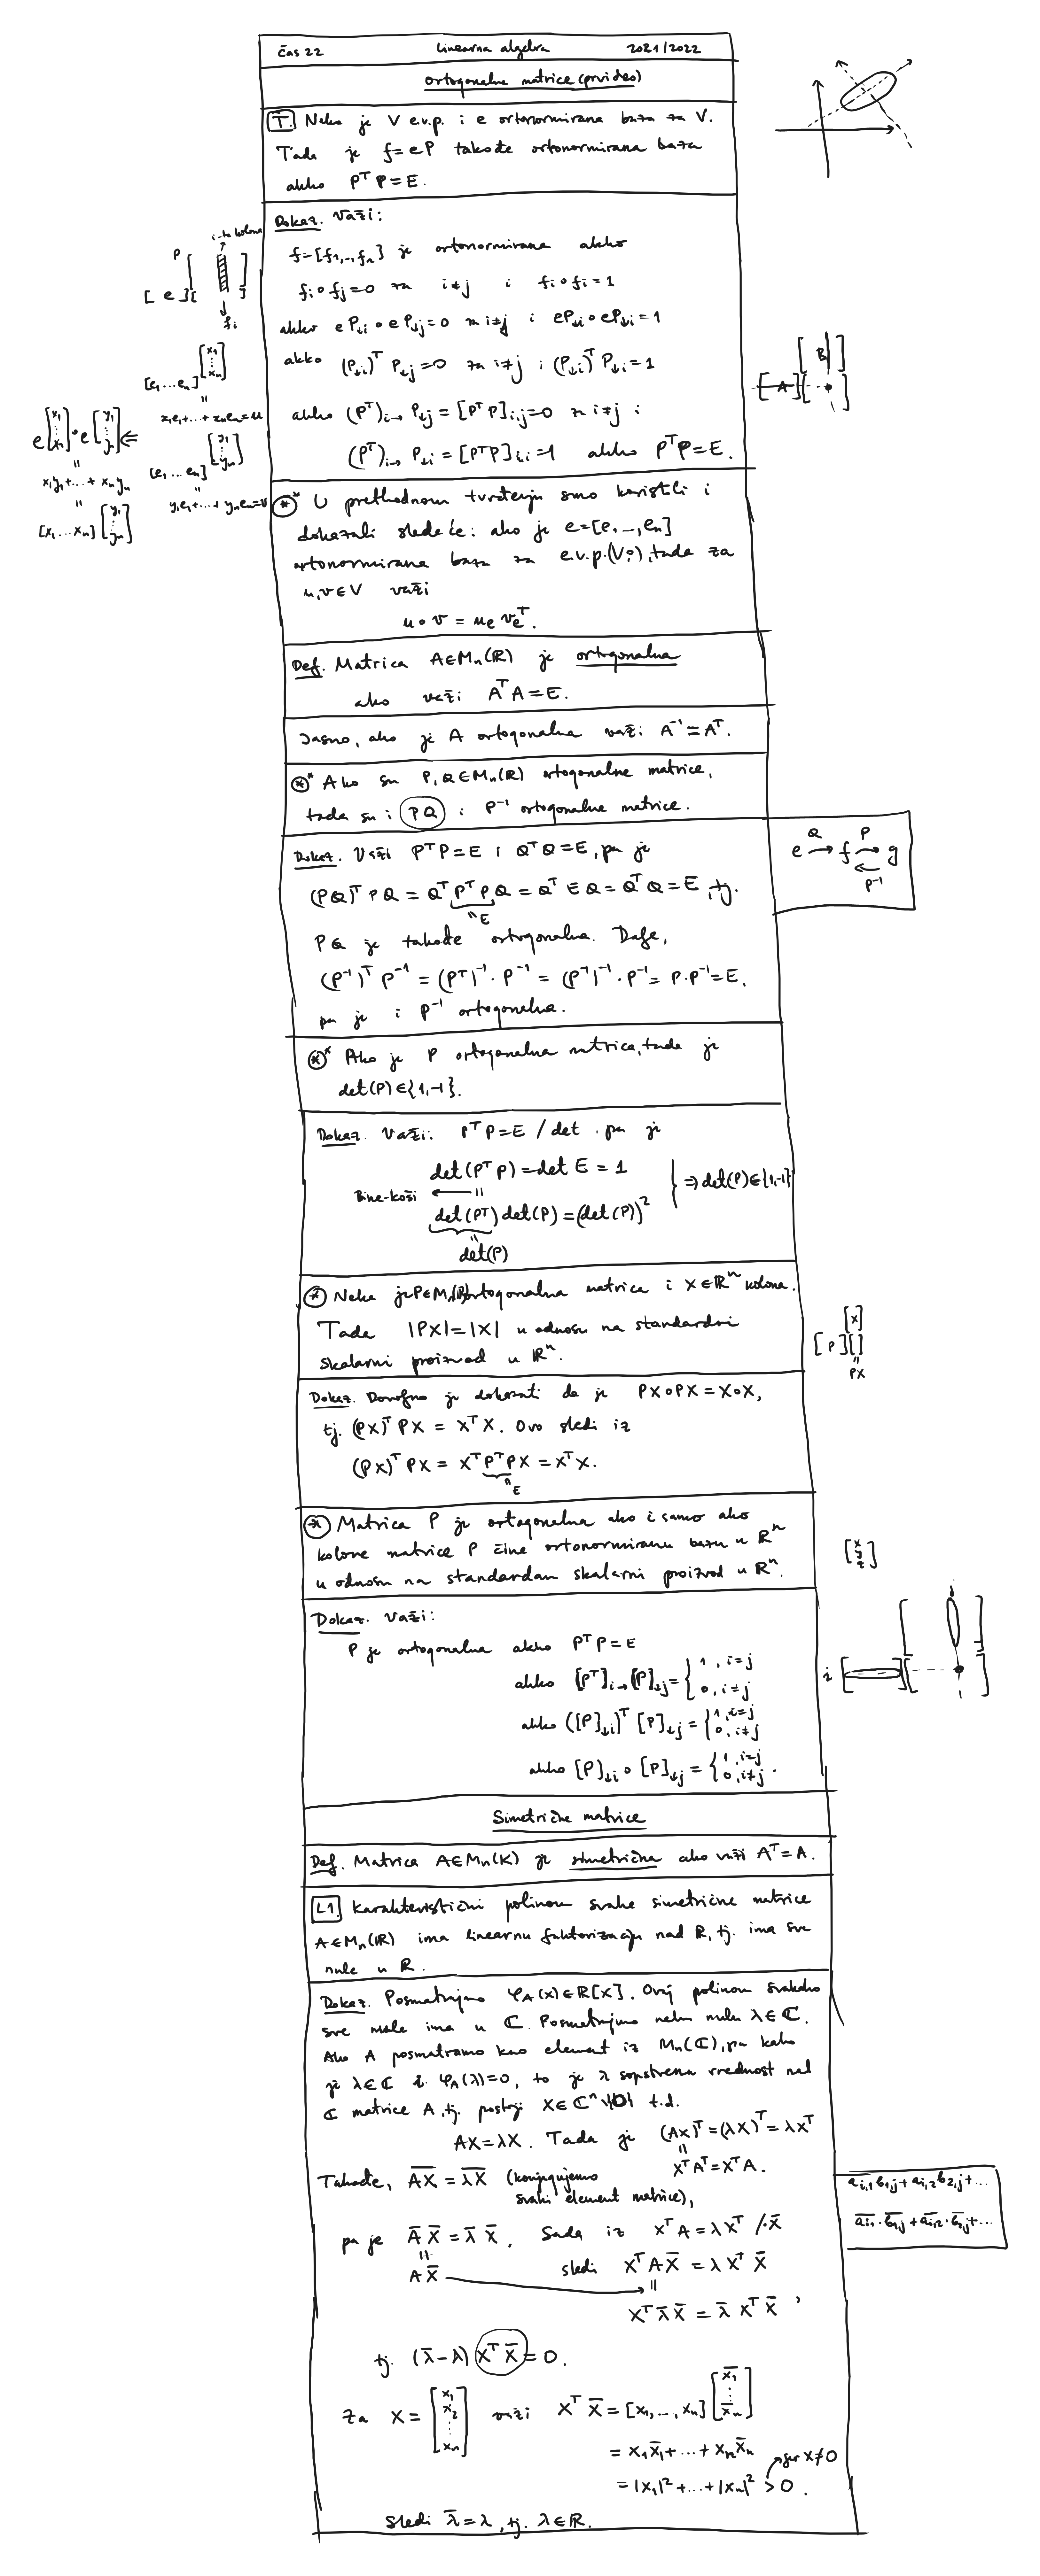 čas 22 Linearna algebra 2021/2022
Ortogonalne matrice (prvi deo)
T. Neka je V e.v.p. i e ortonormirana baza za V.
Tada je f=eP takođe ortonormirana baza
akko PᵀP=E.
Dokaz. Važi:
f=[f₁,...,fₙ] je ortonormirana akko
fᵢ∘fⱼ=0 za i≠j i fᵢ∘fᵢ=1
akko eP↓ᵢ∘eP↓ⱼ=0 za i≠j i eP↓ᵢ∘eP↓ᵢ=1
akko (P↓ᵢ)ᵀ P↓ⱼ=0 za i≠j i (P↓ᵢ)ᵀ P↓ᵢ=1
akko (Pᵀ)ᵢ→ P↓ⱼ = [PᵀP]ᵢ,ⱼ=0 za i≠j i
(Pᵀ)ᵢ→ P↓ᵢ = [PᵀP]ᵢ,ᵢ=1 akko PᵀP=E.
i-ta kolona
P
[e]
fᵢ
[e₁...eₙ] [x₁ ⋮ xₙ]
x₁e₁+...+xₙeₙ=u
[e₁...eₙ] [y₁ ⋮ yₙ]
y₁e₁+...+yₙeₙ=v
e[x₁ ⋮ xₙ]∘e[y₁ ⋮ yₙ] ⇐
x₁y₁+...+xₙyₙ
[x₁...xₙ] [y₁ ⋮ yₙ]
[A] [B]
⊛* U prethodnom tvrđenju smo koristili i
dokazali sledeće: ako je e=[e₁,...,eₙ]
ortonormirana baza za e.v.p.(V,∘), tada za
u,v∈V važi
u∘v = uₑ vₑᵀ.
Def. Matrica A∈Mₙ(ℝ) je ortogonalna
ako važi AᵀA=E.
Jasno, ako je A ortogonalna važi A⁻¹=Aᵀ.
⊛* Ako su P,Q∈Mₙ(ℝ) ortogonalne matrice,
tada su i PQ i P⁻¹ ortogonalne matrice.
Dokaz. Važi PᵀP=E i QᵀQ=E, pa je
(PQ)ᵀPQ = QᵀPᵀPQ = QᵀEQ = QᵀQ = E, tj.
E
PQ je takođe ortogonalna. Dalje,
(P⁻¹)ᵀ P⁻¹ = (Pᵀ)⁻¹·P⁻¹ = (P⁻¹)⁻¹·P⁻¹ = P·P⁻¹=E,
pa je i P⁻¹ ortogonalna.
e →Q f →P g
P⁻¹
⊛* Ako je P ortogonalna matrica, tada je
det(P)∈{1,-1}.
Dokaz. Važi: PᵀP=E /det, pa je
det(PᵀP)=det E = 1
Bine-Koši
det(Pᵀ)det(P)=(det(P))²
} ⇒ det(P)∈{1,-1}
det(P)
⊛ Neka je P∈Mₙ(ℝ) ortogonalna matrica i X∈ℝⁿ kolona.
Tada |PX|=|X| u odnosu na standardni
skalarni proizvod u ℝⁿ.
[P] [X]
PX
Dokaz. Dovoljno je dokazati da je PX∘PX = X∘X,
tj. (PX)ᵀPX = XᵀX. Ovo sledi iz
(PX)ᵀPX = XᵀPᵀPX = XᵀX.
E
⊛ Matrica P je ortogonalna ako i samo ako
kolone matrice P čine ortonormiranu bazu u ℝⁿ
u odnosu na standardan skalarni proizvod u ℝⁿ.
[x y z]
Dokaz. Važi:
P je ortogonalna akko PᵀP=E
akko [Pᵀ]ᵢ→[P]↓ⱼ = { 1, i=j
0, i≠j
akko ([P]↓ᵢ)ᵀ [P]↓ⱼ = { 1, i=j
0, i≠j
akko [P]↓ᵢ ∘ [P]↓ⱼ = { 1, i=j
0, i≠j.
i
j
Simetrične matrice
Def. Matrica A∈Mₙ(K) je simetrična ako važi Aᵀ=A.
L1. Karakteristični polinom svake simetrične matrice
A∈Mₙ(ℝ) ima linearnu faktorizaciju nad ℝ, tj. ima sve
nule u ℝ.
Dokaz. Posmatrajmo φ_A(x)∈ℝ[x]. Ovaj polinom svakako
sve nule ima u ℂ. Posmatrajmo neku nulu λ∈ℂ.
Ako A posmatramo kao element iz Mₙ(ℂ), pa kako
je λ∈ℂ i φ_A(λ)=0, to je λ sopstvena vrednost nad
ℂ matrice A, tj. postoji X∈ℂⁿ\{0} t.d.
AX=λX. Tada je (AX)ᵀ=(λX)ᵀ=λXᵀ
XᵀAᵀ=XᵀA.
Takođe, A̅X̅ = λ̅X̅ (konjugujemo
svaki element matrice),
pa je A̅ X̅ = λ̅ X̅. Sada iz XᵀA = λXᵀ /·X̅
A X̅
sledi XᵀAX̅ = λXᵀX̅
Xᵀλ̅X̅ = λ̅ XᵀX̅,
tj. (λ̅-λ) XᵀX̅ = 0.
Za X = [x₁ x₂ ⋮ xₙ] važi XᵀX̅ = [x₁,...,xₙ] [x̅₁ ⋮ x̅ₙ]
= x₁x̅₁+...+xₙx̅ₙ
= |x₁|²+...+|xₙ|² > 0.
jer X≠0
Sledi λ̅=λ, tj. λ∈ℝ.
aᵢ,₁b₁,ⱼ+aᵢ,₂b₂,ⱼ+...
a̅ᵢ₁·b̅₁ⱼ+a̅ᵢ₂·b̅₂ⱼ+...